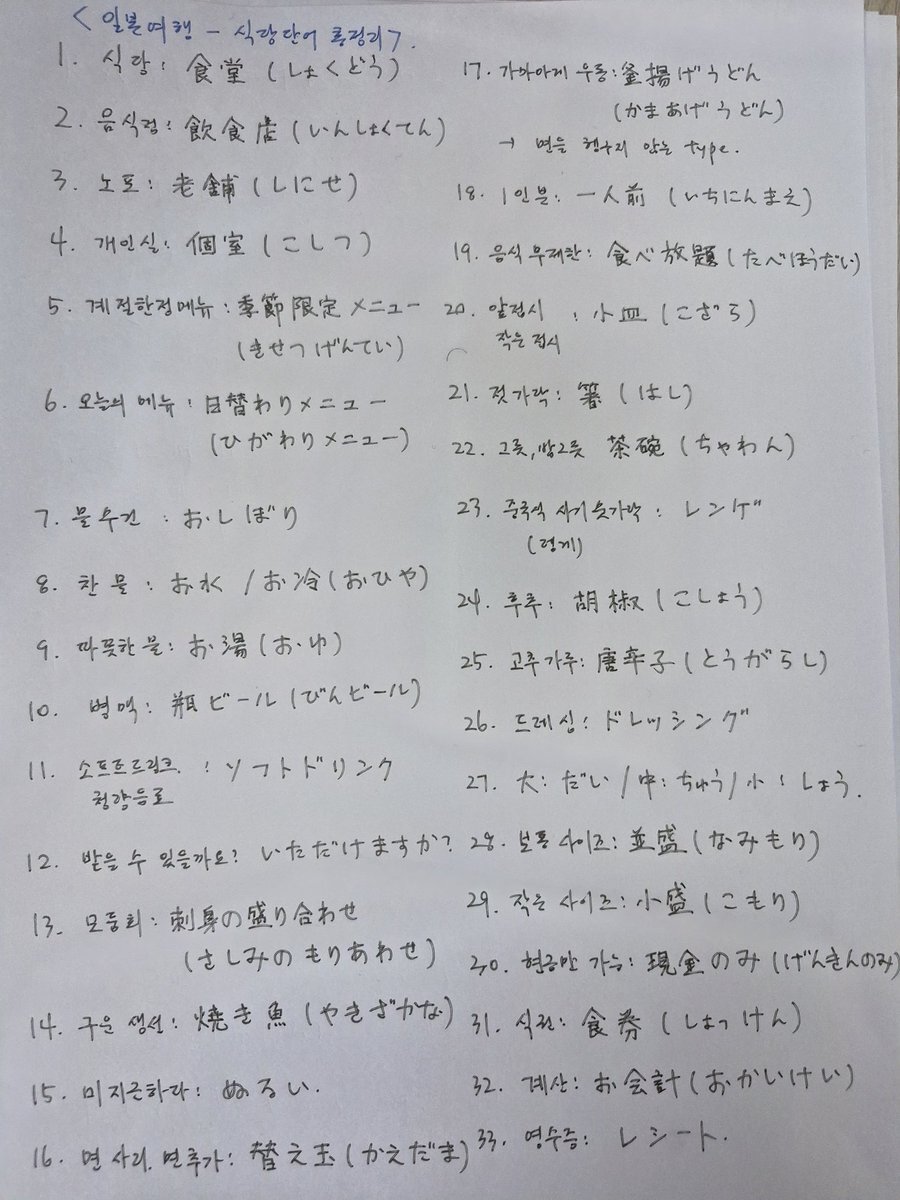 < 일본여행 - 식당단어 총정리 >.
1. 식당: 食堂 (しょくどう)
2. 음식점: 飲食店 (いんしょくてん)
3. 노포: 老舗 (しにせ)
4. 개인실: 個室 (こしつ)
5. 계절한정메뉴: 季節限定 メニュー
(きせつげんてい)
6. 오늘의 메뉴: 日替わりメニュー
(ひがわりメニュー)
7. 물수건: おしぼり
8. 찬 물: お水 / お冷 (おひや)
9. 따뜻한 물: お湯 (おゆ)
10. 병맥: 瓶ビール (びんビール)
11. 소프트드링크. : ソフトドリンク
청량음료
12. 받을 수 있을까요? いただけますか?
13. 모둠회: 刺身の盛り合わせ
(さしみの もりあわせ)
14. 구운 생선: 焼き魚 (やきざかな)
15. 미지근하다: ぬるい.
16. 면 사리. 면추가: 替え玉 (かえだま)
17. 가마아게 우동: 釜揚げうどん
(かまあげうどん)
→ 면을 헹구지 않는 type.
18. 1인분: 一人前 (いちにんまえ)
19. 음식 무제한: 食べ放題 (たべほうだい)
20. 앞접시 : 小皿 (こざら)
작은 접시
21. 젓가락: 箸 (はし)
22. 그릇, 밥그릇 茶碗 (ちゃわん)
23. 중국식 사기 숟가락: レンゲ
(렝게)
24. 후추: 胡椒 (こしょう)
25. 고추가루: 唐辛子 (とうがらし)
26. 드레싱: ドレッシング
27. 大: だい / 中: ちゅう / 小: しょう.
28. 보통 사이즈: 並盛 (なみもり)
29. 작은 사이즈: 小盛 (こもり)
30. 현금만 가능: 現金のみ (げんきんのみ)
31. 식권: 食券 (しょっけん)
32. 계산: お会計 (おかいけい)
33. 영수증: レシート.